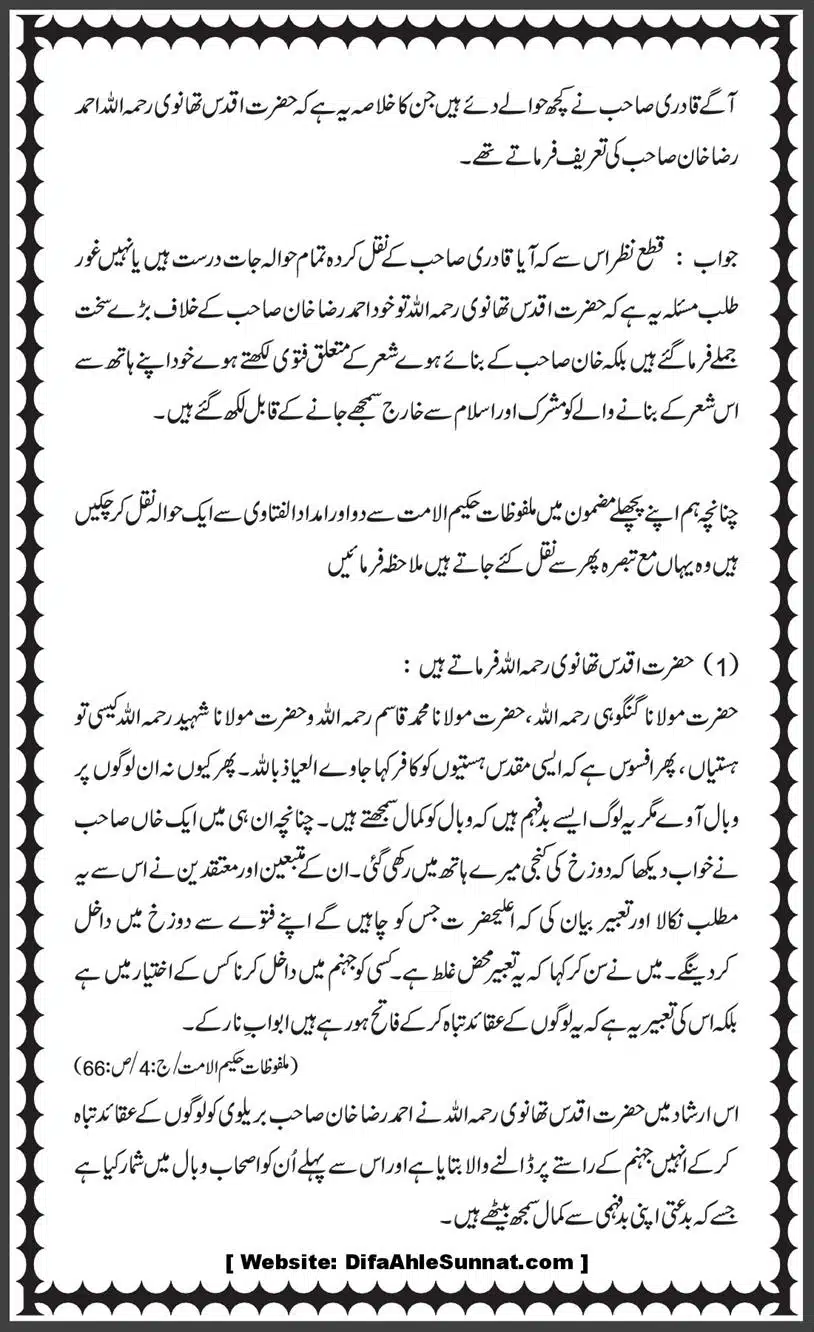 آگے قادری صاحب نے کچھ حوالے دئے ہیں جن کا خلاصہ یہ ہے کہ حضرت اقدس تھانوی رحمہ اللہ احمد
رضا خان صاحب کی تعریف فرماتے تھے۔
جواب : قطع نظر اس سے کہ آیا قادری صاحب کے نقل کردہ تمام حوالہ جات درست ہیں یا نہیں غور
طلب مسئلہ یہ ہے کہ حضرت اقدس تھانوی رحمہ اللہ تو خود احمد رضا خان صاحب کے خلاف بڑے سخت
جملے فرما گئے ہیں بلکہ خان صاحب کے بنائے ہوے شعر کے متعلق فتوی لکھتے ہوے خود اپنے ہاتھ سے
اس شعر کے بنانے والے کو مشرک اور اسلام سے خارج سمجھے جانے کے قابل لکھ گئے ہیں۔
چنانچہ ہم اپنے پچھلے مضمون میں ملفوظات حکیم الامت سے دو اور امداد الفتاوی سے ایک حوالہ نقل کر چکیں
ہیں وہ یہاں مع تبصرہ پھر سے نقل کئے جاتے ہیں ملاحظہ فرمائیں
(1) حضرت اقدس تھانوی رحمہ اللہ فرماتے ہیں :
حضرت مولانا گنگوہی رحمہ اللہ ،حضرت مولانا محمد قاسم رحمہ اللہ و حضرت مولانا شہید رحمہ اللہ کیسی تو
ہستیاں ، پھر افسوس ہے کہ ایسی مقدس ہستیوں کو کافر کہا جاوے العیاذ باللہ۔ پھر کیوں نہ ان لوگوں پر
وبال آوے مگر یہ لوگ ایسے بدفہم ہیں کہ وبال کو کمال سمجھتے ہیں۔ چنانچہ ان ہی میں ایک خاں صاحب
نے خواب دیکھا کہ دوزخ کی کنجی میرے ہاتھ میں رکھی گئی۔ ان کے متبعین اور معتقدین نے اس سے یہ
مطلب نکالا اور تعبیر بیان کی کہ اعلیحضر ت جس کو چاہیں گے اپنے فتوے سے دوزخ میں داخل
کردینگے۔ میں نے سن کر کہا کہ یہ تعبیر محض غلط ہے۔ کسی کو جہنم میں داخل کرنا کس کے اختیار میں ہے
بلکہ اس کی تعبیر یہ ہے کہ یہ لوگوں کے عقائد تباہ کر کے فاتح ہو رہے ہیں ابوابِ نار کے۔
(ملفوظات حکیم الامت/ج:4/ص:66)
اس ارشاد میں حضرت اقدس تھانوی رحمہ اللہ نے احمد رضا خان صاحب بریلوی کو لوگوں کے عقائد تباہ
کر کے انہیں جہنم کے راستے پر ڈالنے والا بتایا ہے اور اس سے پہلے اُن کو اصحاب وبال میں شمار کیا ہے
جسے کہ بدعتی اپنی بدفہمی سے کمال سمجھ بیٹھے ہیں۔
[ Website: DifaAhleSunnat.com ]